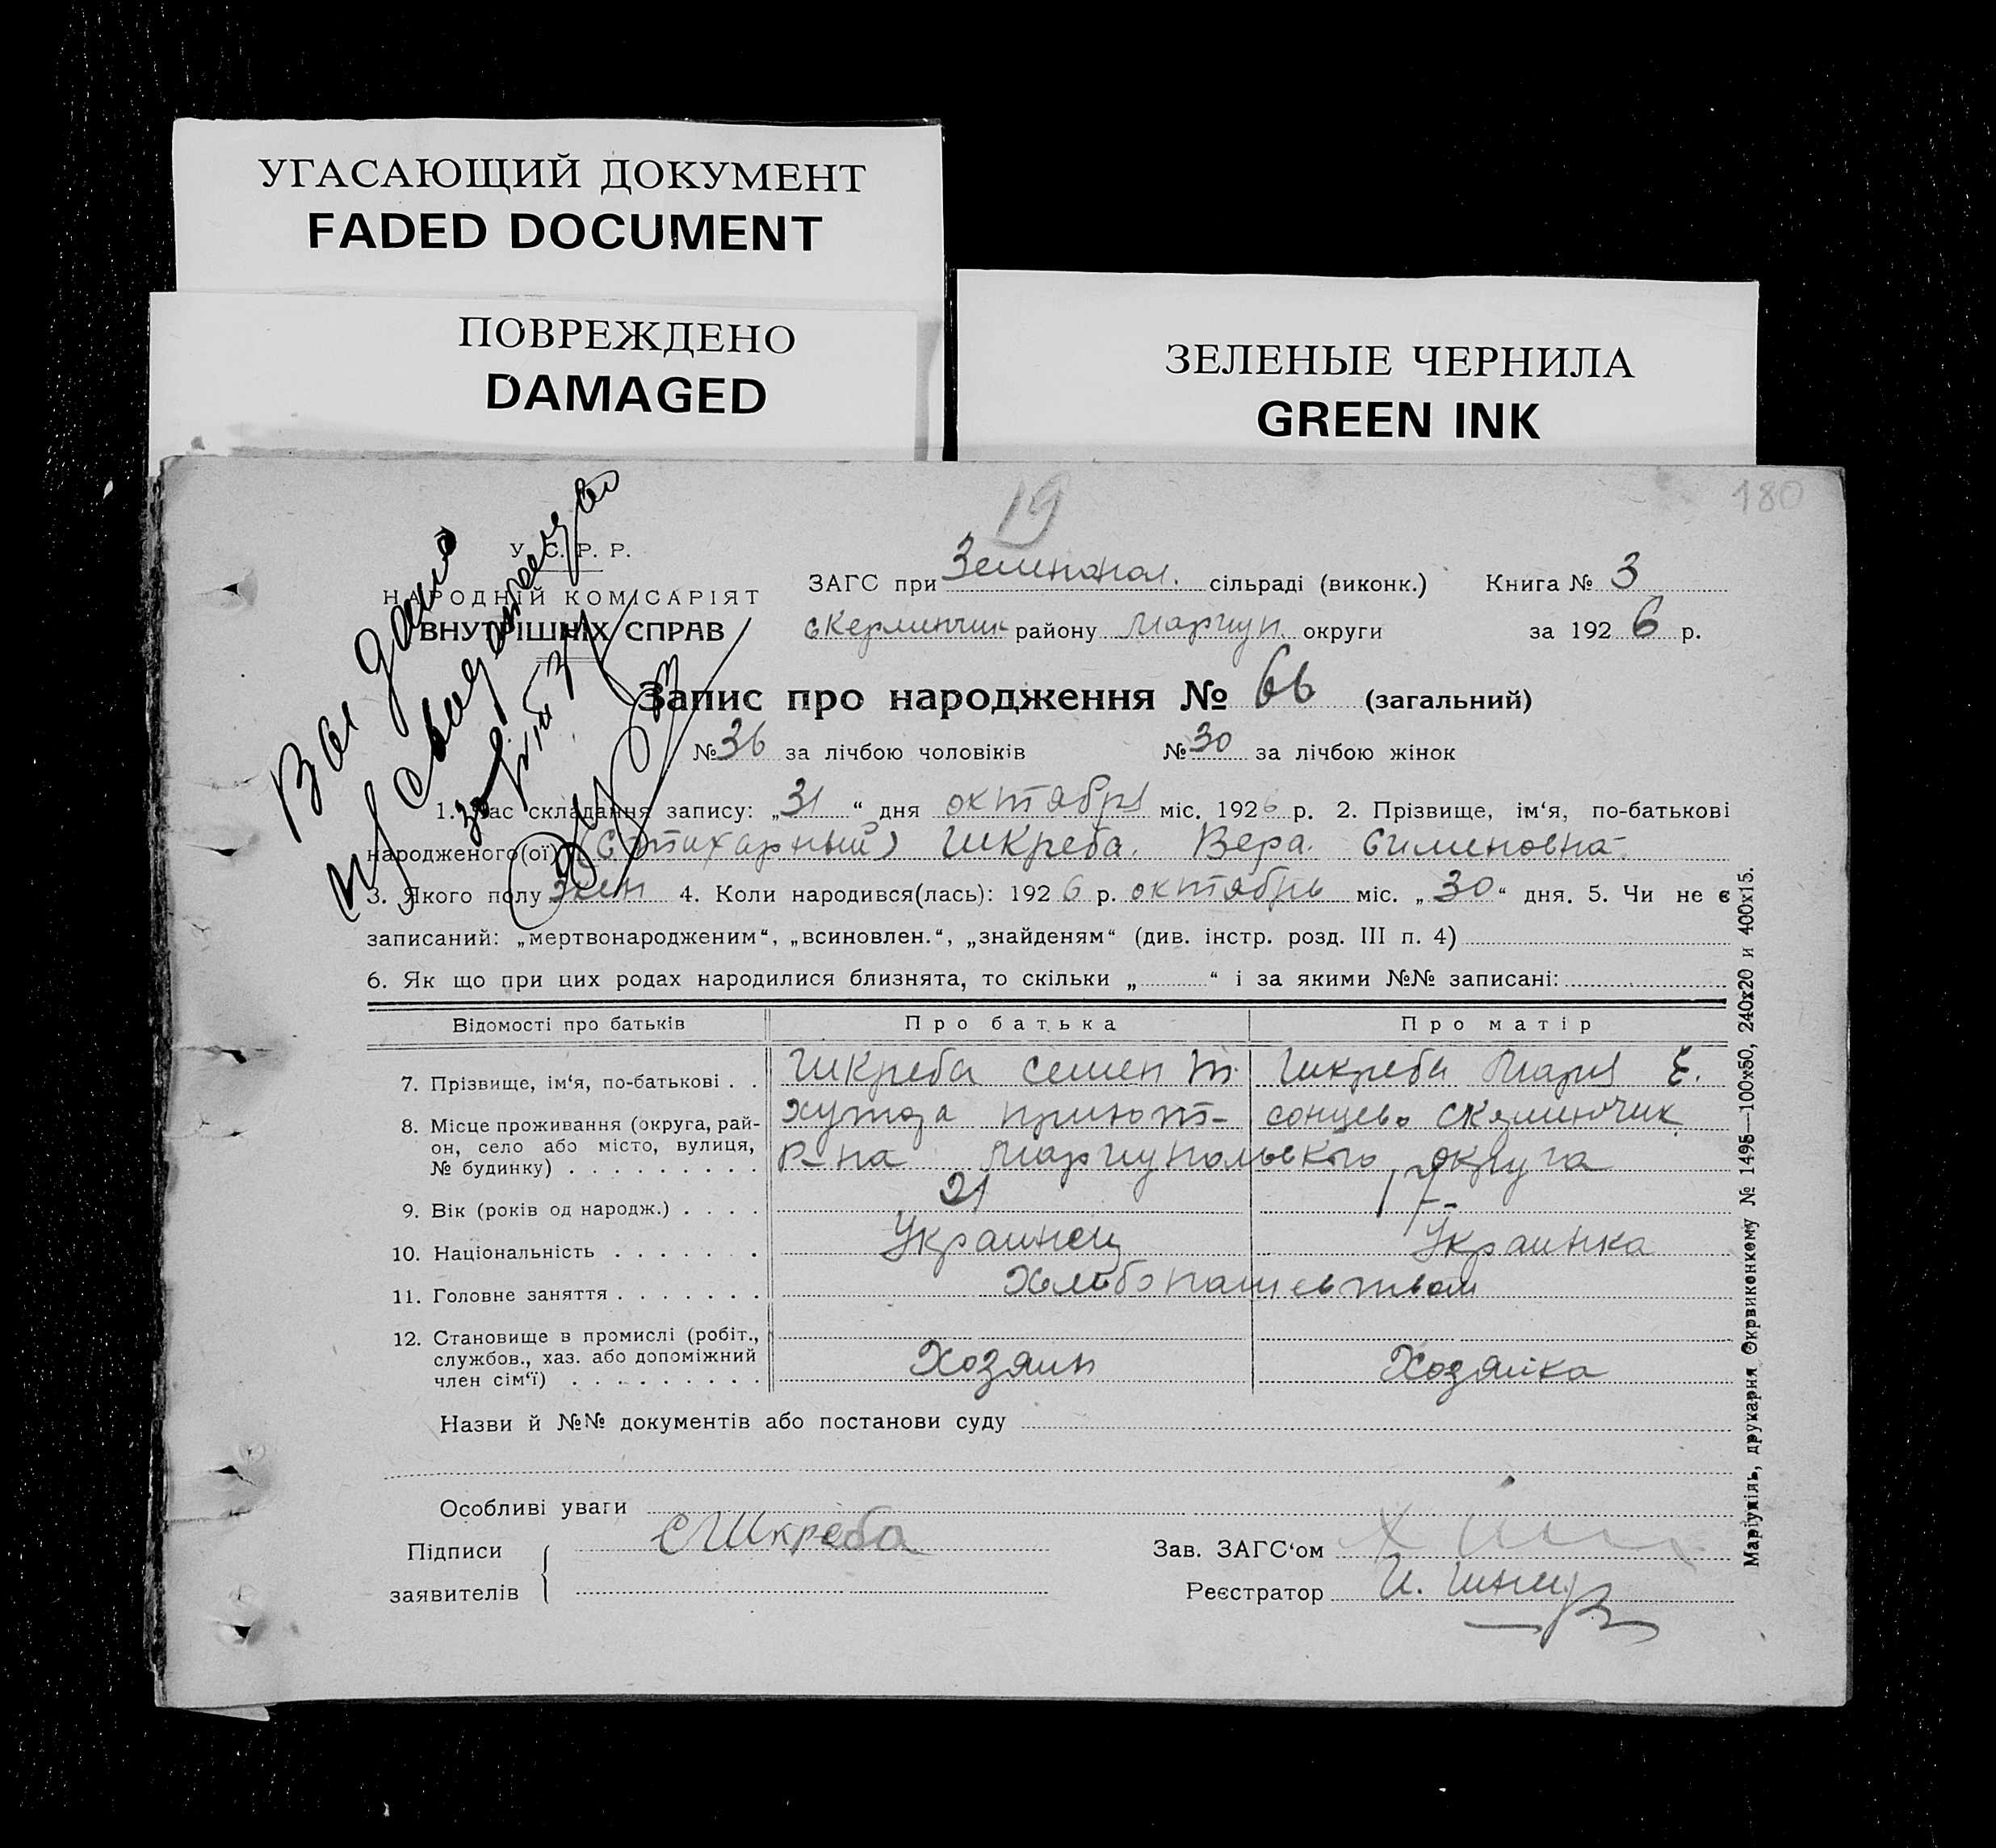 УГАСАЮЩИЙ ДОКУМЕНТ
FADED DOCUMENT
ПОВРЕЖДЕНО
DAMAGED
ЗЕЛЕНЫЕ ЧЕРНИЛА
GREEN INK
19
180
Вы дано
У. С. Р. Р.
НАРОДНІЙ КОМІСАРІЯТ
ВНУТРІШНІХ СПРАВ
ЗАГС при сільраді (виконк.) Книга № 3
району Мариуп. округи за 192 6 р.
Запис про народження № 66 (загальний)
№ 36 за лічбою чоловіків № 30 за лічбою жінок
1. Час складання запису: „31“ дня октября міс. 1926 р. 2. Прізвище, ім‘я, по-батькові
народженого(ої) Шкреба. Вера. Сименовна
3. Якого полу жен 4. Коли народився(лась): 1926 р. октябрь міс. „30“ дня. 5. Чи не є
записаний: „мертвонародженим“, „всиновлен.“, „знайденям“ (див. інстр. розд. III п. 4)
6. Як що при цих родах народилися близнята, то скільки „ “ і за якими №№ записані:
Відомості про батьків Про батька Про матір
7. Прізвище, ім‘я, по-батькові . . Шкреба Семен Т. Шкреба Мария Е.
8. Місце проживання (округа, рай-
он, село або місто, вулиця,
№ будинку) . . . . . . . . .
хутора приют-
р-на Мариупольского округа
9. Вік (років од народж.) . . . . 21 17
10. Національність . . . . . . . Украинец Украинка
11. Головне заняття . . . . . . . Хлебопашевством
12. Становище в промислі (робіт.,
службов., хаз. або допоміжний
член сім‘ї) . . . . . . . . .
Хозяин Хозяйка
Назви й №№ документів або постанови суду
Особливі уваги
Підписи
заявителів
СШкреба
Зав. ЗАГС‘ом
Реєстратор
Маріупіль, друкарня Окрвиконкому № 1495—100х50, 240х20 и 400х15.